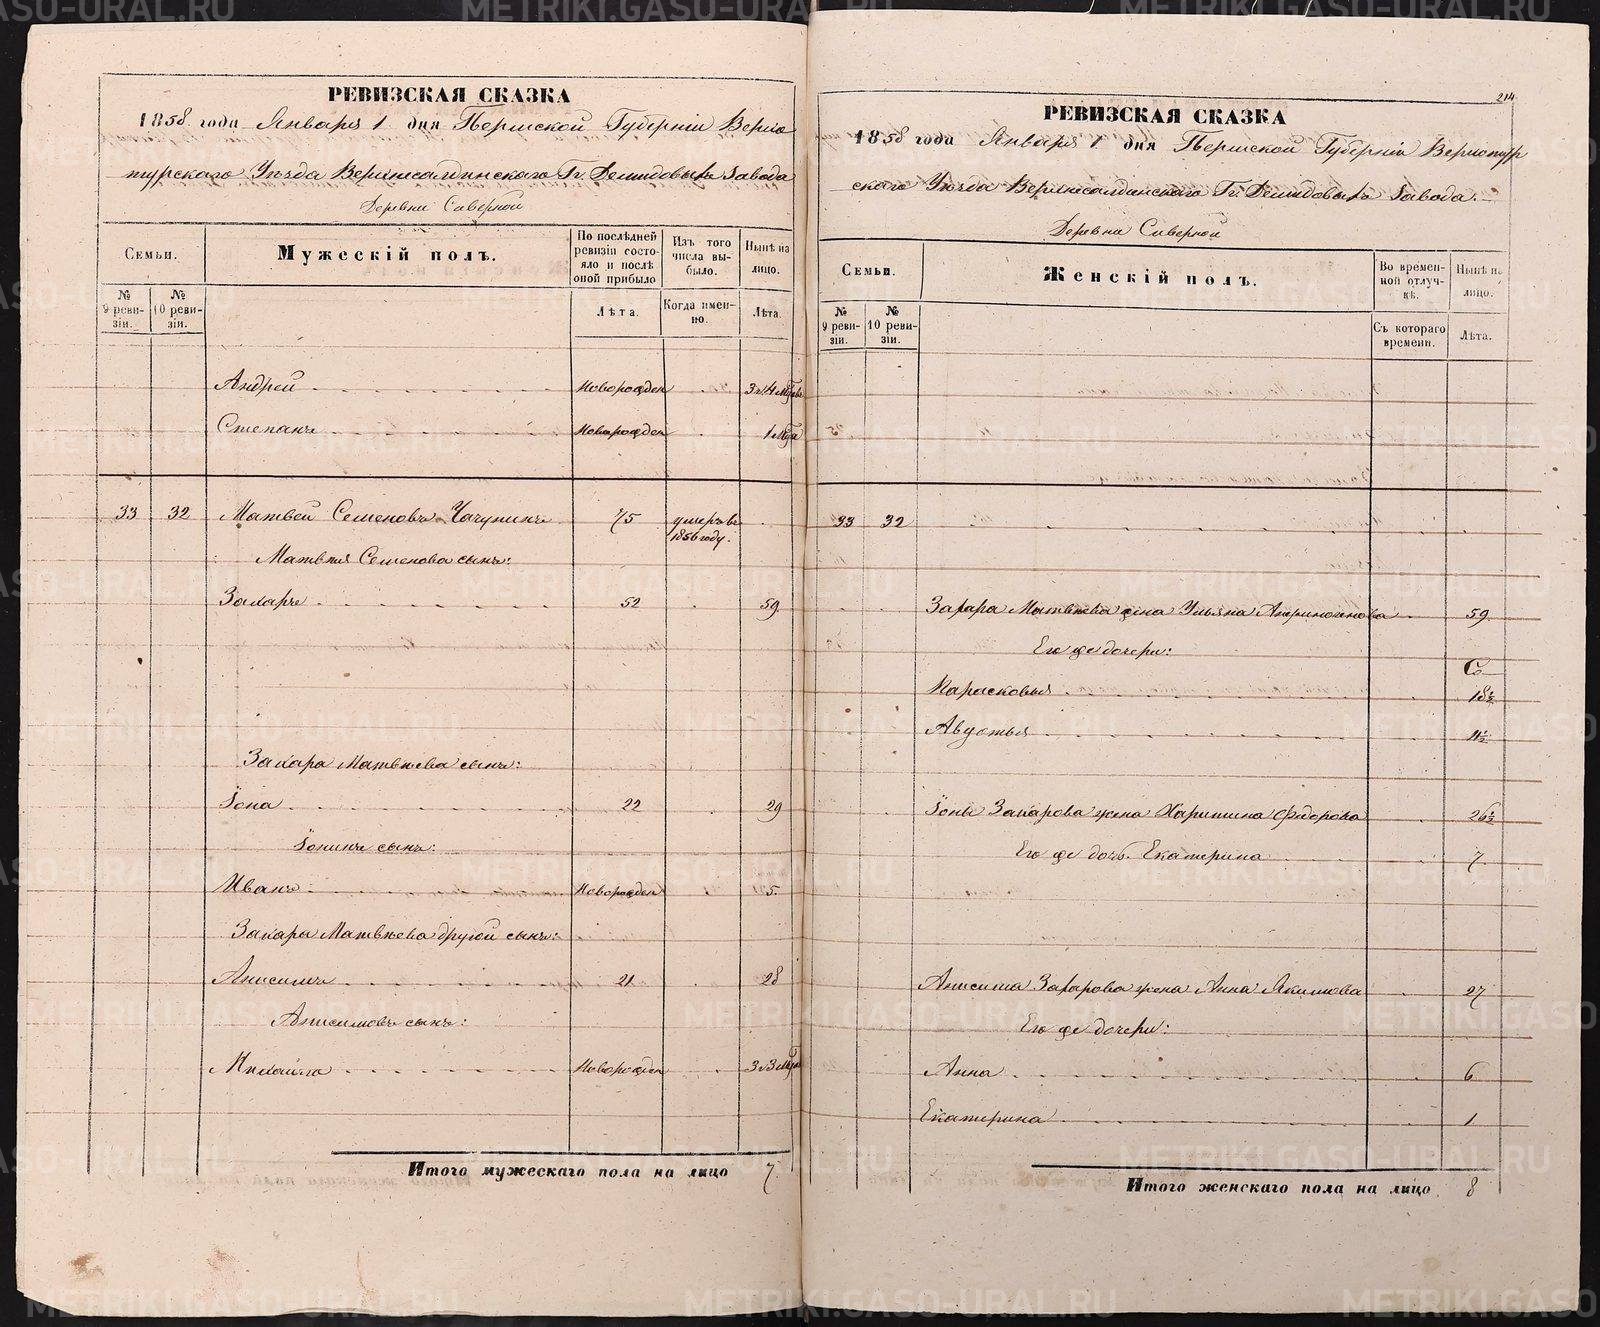 РЕВИЗСКАЯ СКАЗКА
1858 года Января 1 дня Пермской Губерніи Верхо
турскаго Уѣзда Верхнесалдинскаго Гг. Демидовыхъ Завода
Деревни Сиверной
Семьи.
Мужескій полъ.
По послѣдней ревизіи состояло и послѣ оной прибыло
Изъ того числа выбыло.
Нынѣ на лицо.
№ 9 ревизіи.
№ 10 ревизіи.
Лѣта.
Когда именно.
Лѣта.
Андрей Новорожден
Степанъ Новорожден
33 32 Матвей Семеновъ Чачунинъ 75 умеръ въ 1856 году.
Матвѣя Семенова сынъ:
Захаръ 52 59
Захара Матвѣева сынъ:
Іона 22 29
Іонинъ сынъ:
Иванъ Новорожден 5.
Захара Матвѣева другой сынъ:
Анисимъ 21 28
Анисимовъ сынъ:
Михайло Новорожден
Итого мужескаго пола на лицо 7.
214
РЕВИЗСКАЯ СКАЗКА
1858 года Января 1 дня Пермской Губерніи Верхотур
скаго Уѣзда Верхнесалдинскаго Гг. Демидовыхъ Завода.
Деревни Сиверной
Семьи.
Женскій полъ.
Во временной отлучкѣ.
Нынѣ на лицо.
№ 9 ревизіи.
№ 10 ревизіи.
Съ котораго времени.
Лѣта.
33 32
Захара Матвѣева жена Ульяна 59
Его же дочери:
Парасковья 18½
Авдотья 11½
Іоны Захарова жена Харитина Федорова 26½
Его же дочь Екатерина 7
Анисима Захарова жена Анна Якимова 27
Его же дочери:
Анна 6
Екатерина 1
Итого женскаго пола на лицо 8
METRIKI.GASO-URAL.RU